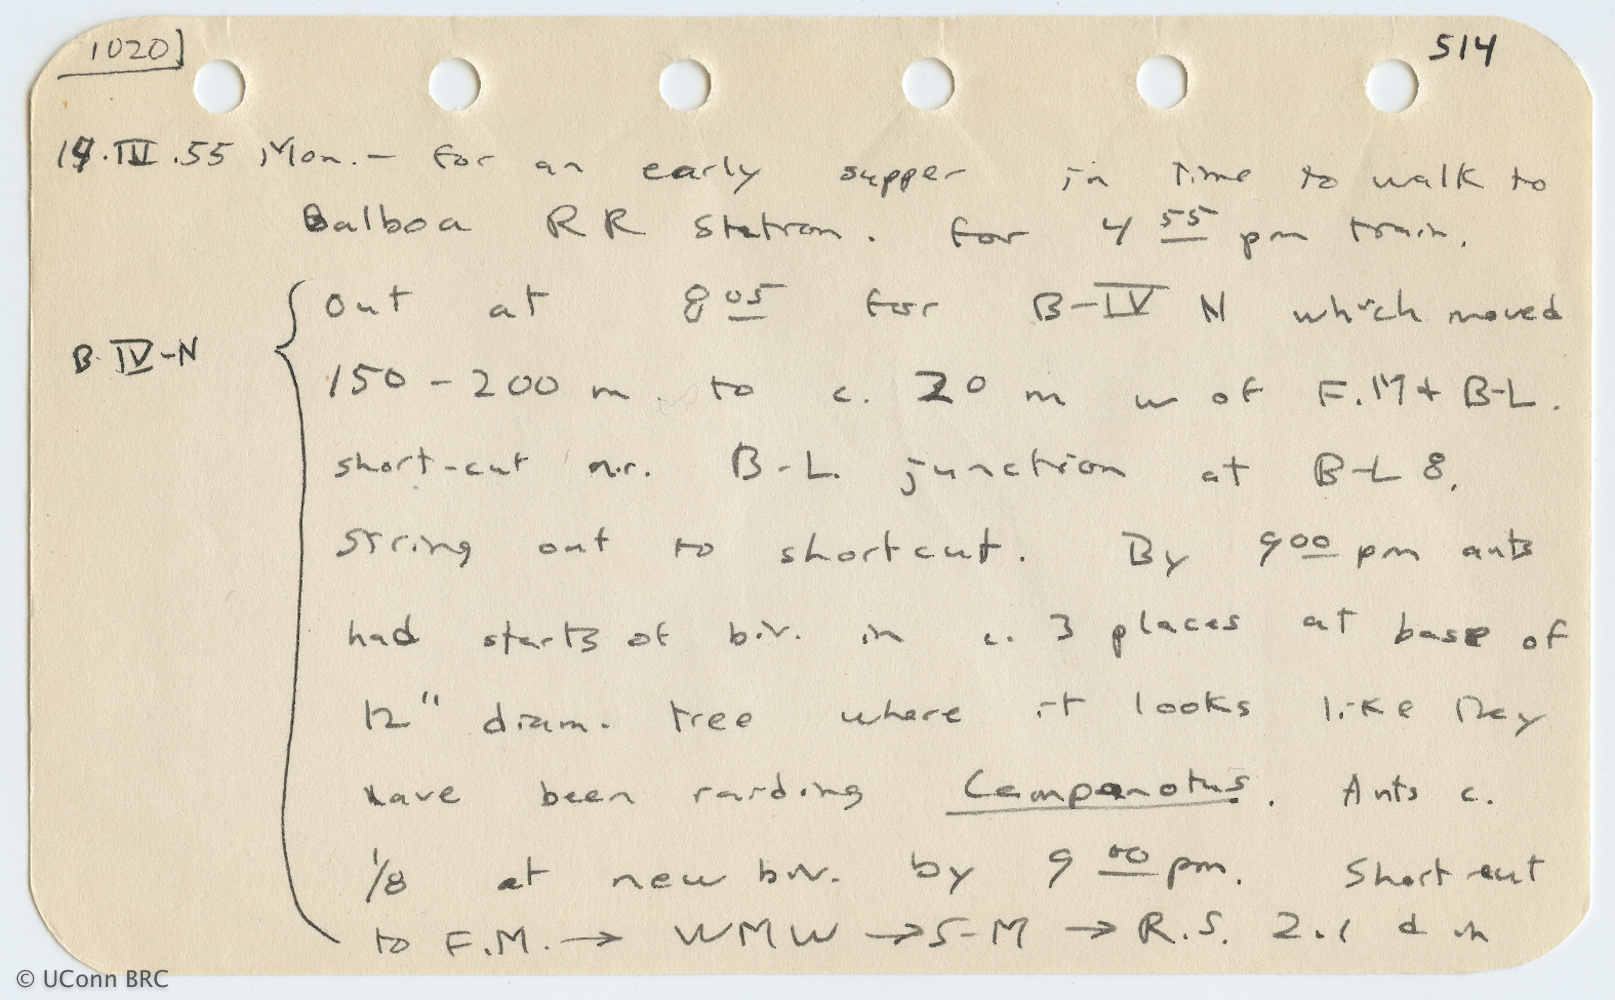 1020]
514
14.IV.55 Mon. - for an early supper in time to walk to
Balboa RR Station. for 4 55 pm train.
B-IV-N
Out at 8 05 for B-IV N which moved
150-200 m. to c. 20 m w of F.M + B-L.
short-cut nr. B-L. junction at B-L 8.
String out to shortcut. By 9 00 pm ants
had starts of biv. in c. 3 places at base of
12" diam. tree where it looks like they
have been raiding Camponotus. Ants c.
1/8 at new biv. by 9 00 pm. Short cut
to F.M. → WMW → S-M → R.S. 2.1
© UConn BRC